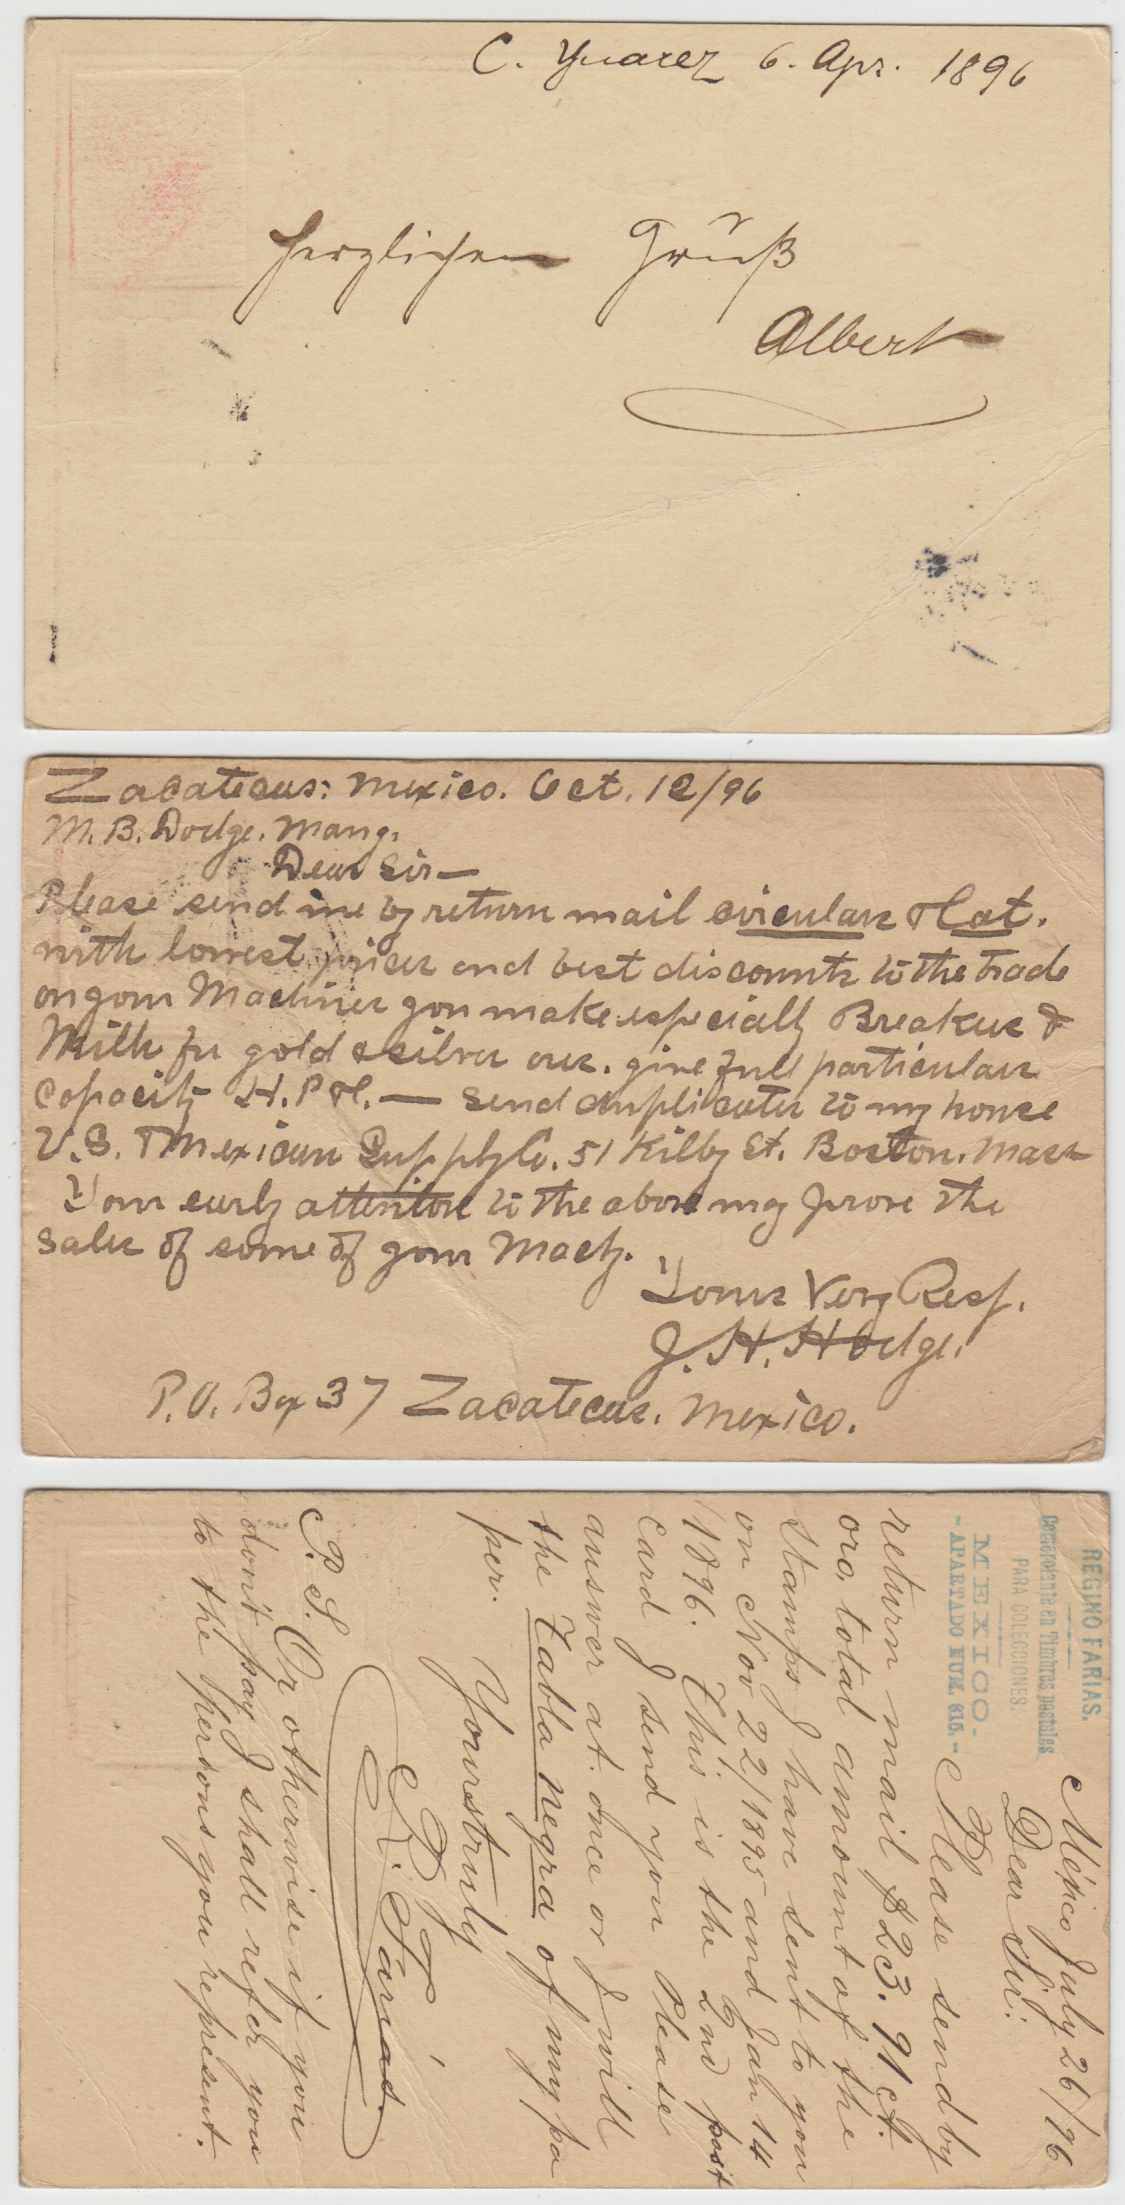 C. Yuarez 6. Apr. 1896
Herzlichen Gruß
Albert
Zacatecas: Mexico. Oct. 12/96
M. B. Dodge. Mang.
Dear Sir—
Please send me by return mail circulars & Cat.
with lowest prices and best discounts to the trade
on your Machines you make especially Breakers &
Mills for gold & silver ores. give full particulars
Capacity H.P. &c. — Send duplicates to my house
U.S. & Mexican Supply Co. 51 Kilby St. Boston. Mass
Your early attention to the above may prove the
sales of some of your Machy.
Yours Very Resp.
J. H. Hodge.
P.O. Box 37 Zacatecas. Mexico.
REGINO FARIAS.
Comerciante en Timbres postales
PARA COLECCIONES.
MEXICO.
- APARTADO NUM. 615. -
México July 26/96
Dear Sir:
Please send by
return mail $23.91 ct.
oro, total amount of the
stamps I have sent to you
on Nov 22/1895 and Jan 14
1896. This is the 2nd post
card I send you Please
answer at once or I will
the Tabla negra of my pa
per.
Yourstruly
R. Farias.
P.S. Or otherwise if you
don't pay I shall refer you
to the persons you represent.